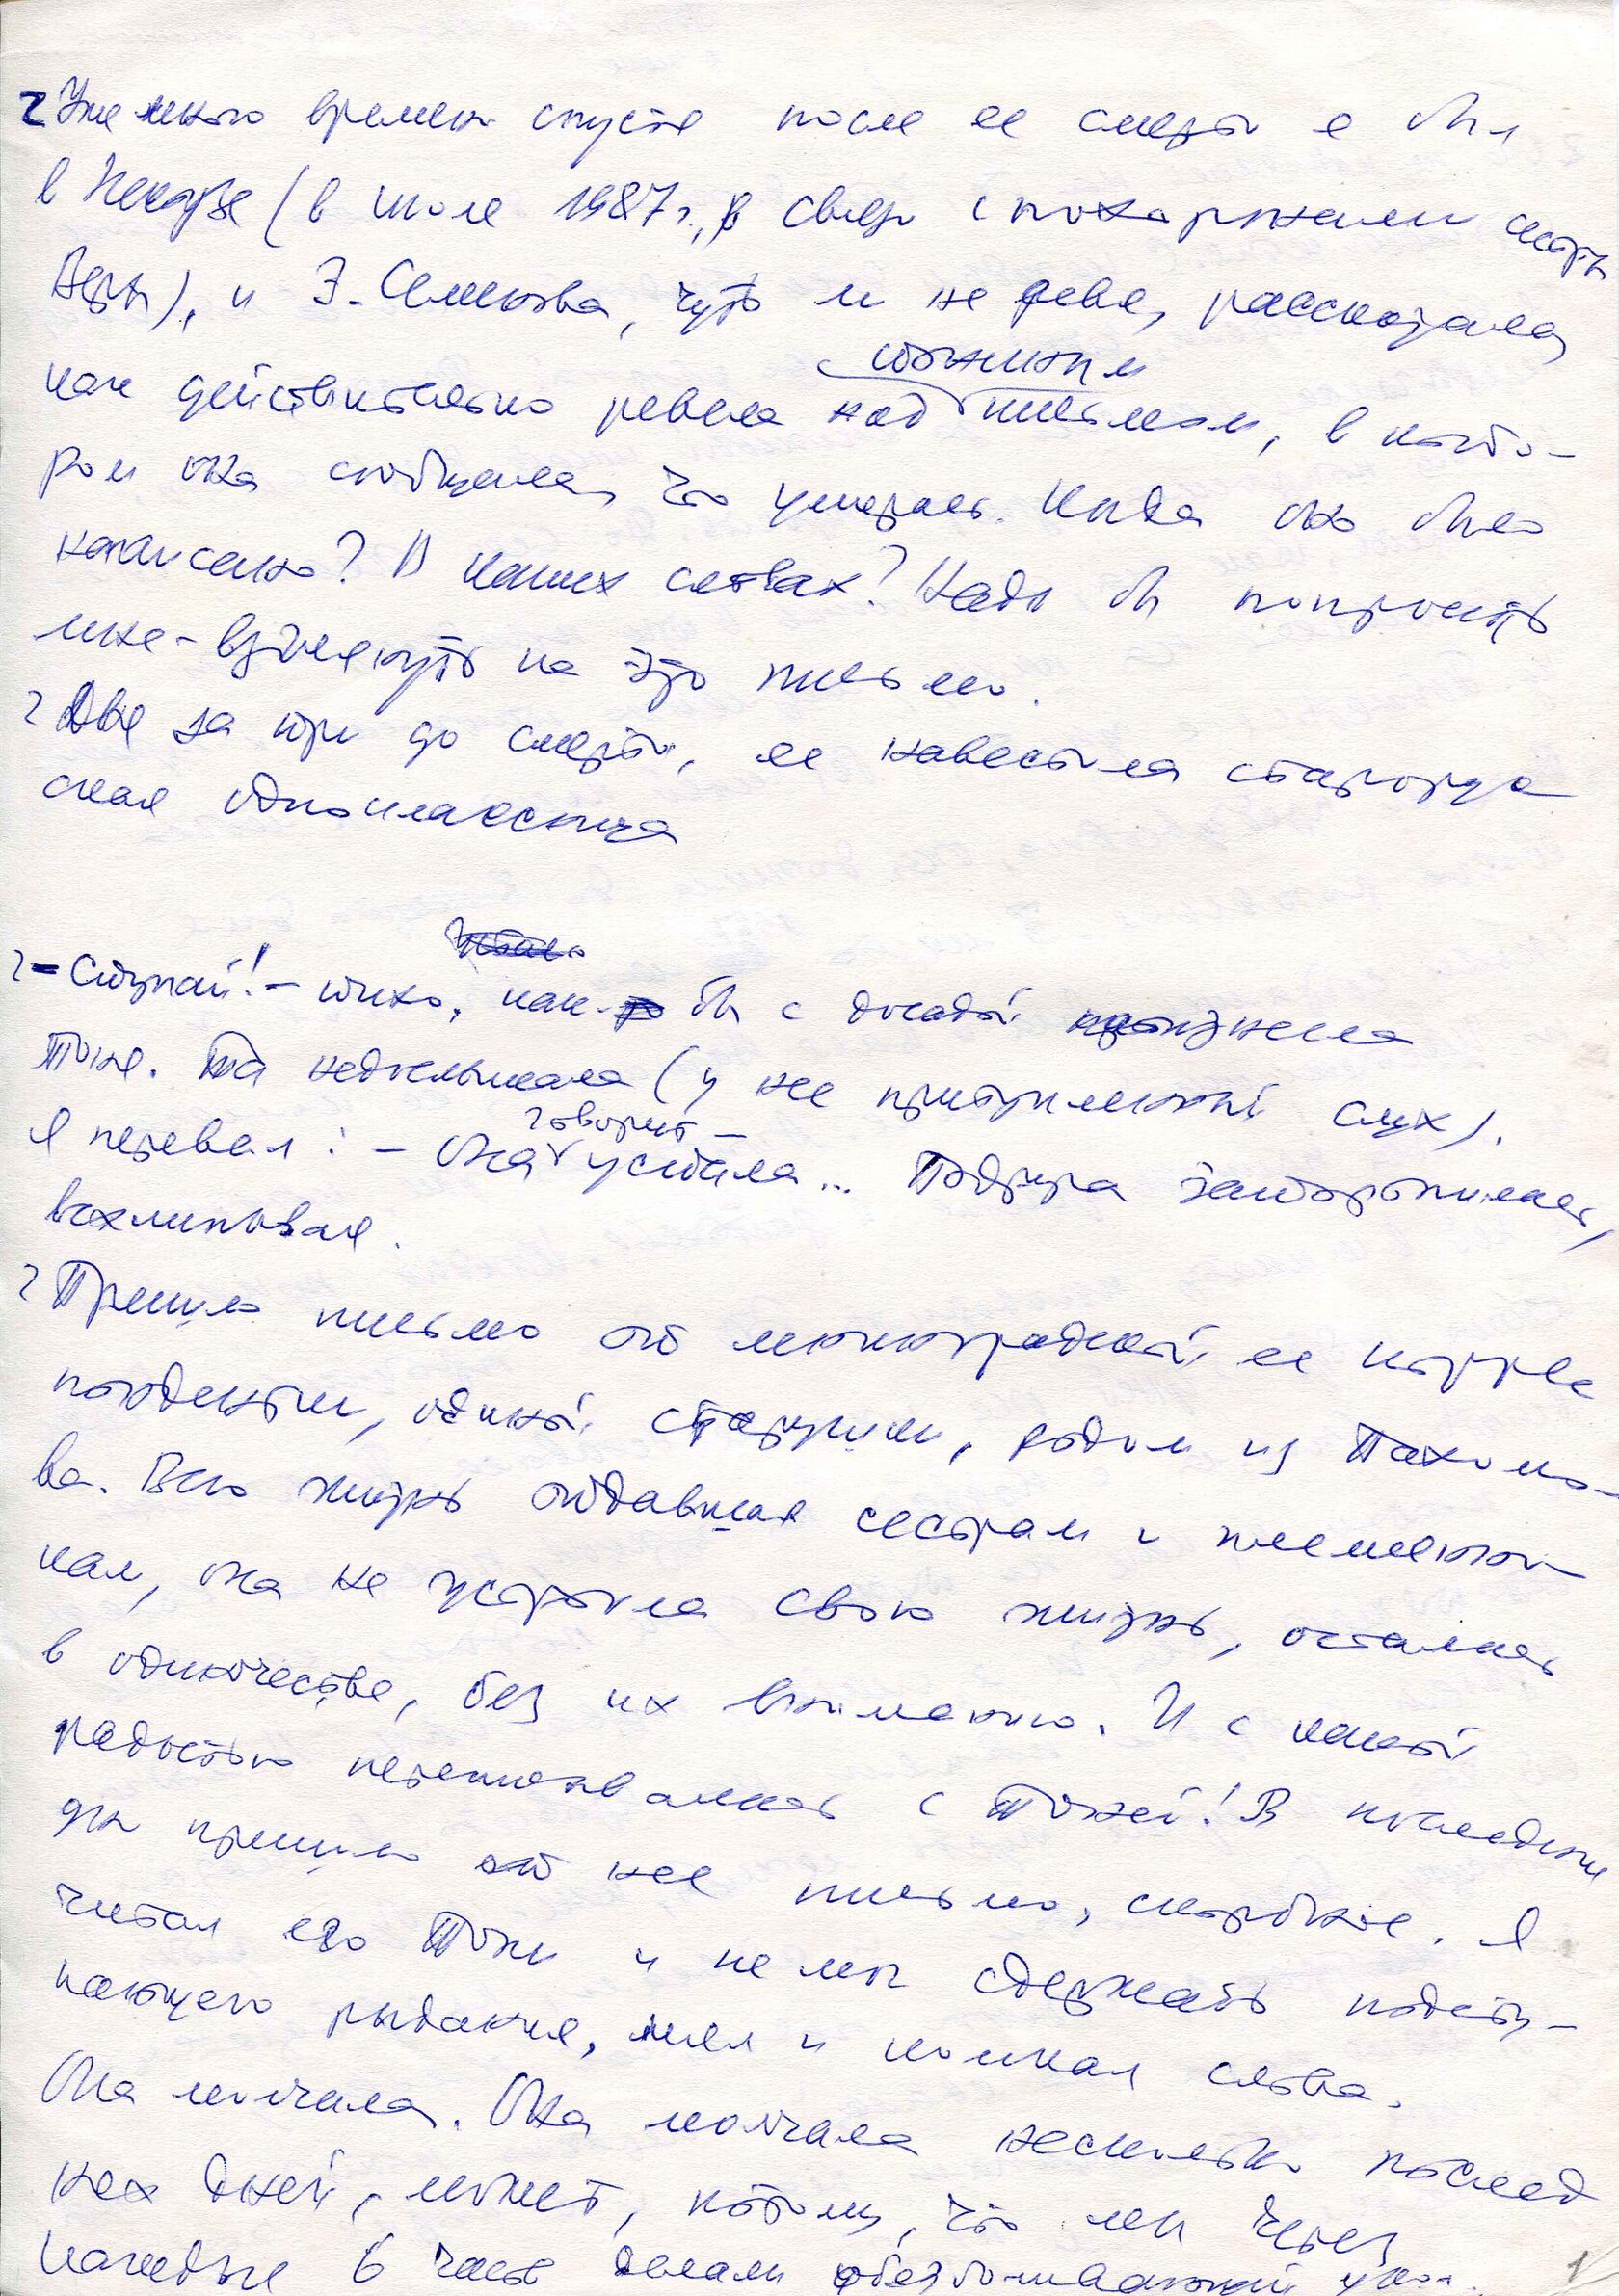 Уже много времени спустя после ее смерти я был
в Некоузе (в июле 1987 г., в связи с похоронами сестры
Веры), и З. Семенова, чуть и не ревя, рассказала,
как действительно ревела над Тониным письмом, в кото-
ром она сообщала, что умирает. Когда оно было
написано? В каких словах? Надо бы попросить
мне - взглянуть на это письмо.
Дня за три до смерти, ее навестила
ская одноклассница
- Слушай! - тихо, как бы с досадой произнесла
Тоня. Та недослышала (у нее притупленный слух).
Я перевел: - Она говорит - устала... Подруга заторопилась,
всхлипывая.
Пришло письмо от ленинградской ее коррес
пондентки, одинокой старушки, родом из Пахомо-
ва. Всю жизнь отдавшая сестрам и племянни
кам, она не устроила свою жизнь, осталась
в одиночестве, без их внимания. И с какой
радостью переписывалась с Тоней! В последние
дни пришло от нее письмо, скорбное. Я
читал его Тоне и не мог сдержать подсту-
пающего рыдания, мял и комкал слова.
Она молчала. Она молчала несколько послед
них дней, может, потому, что мы через
каждые 6 часов делали обезболивающий укол.
1